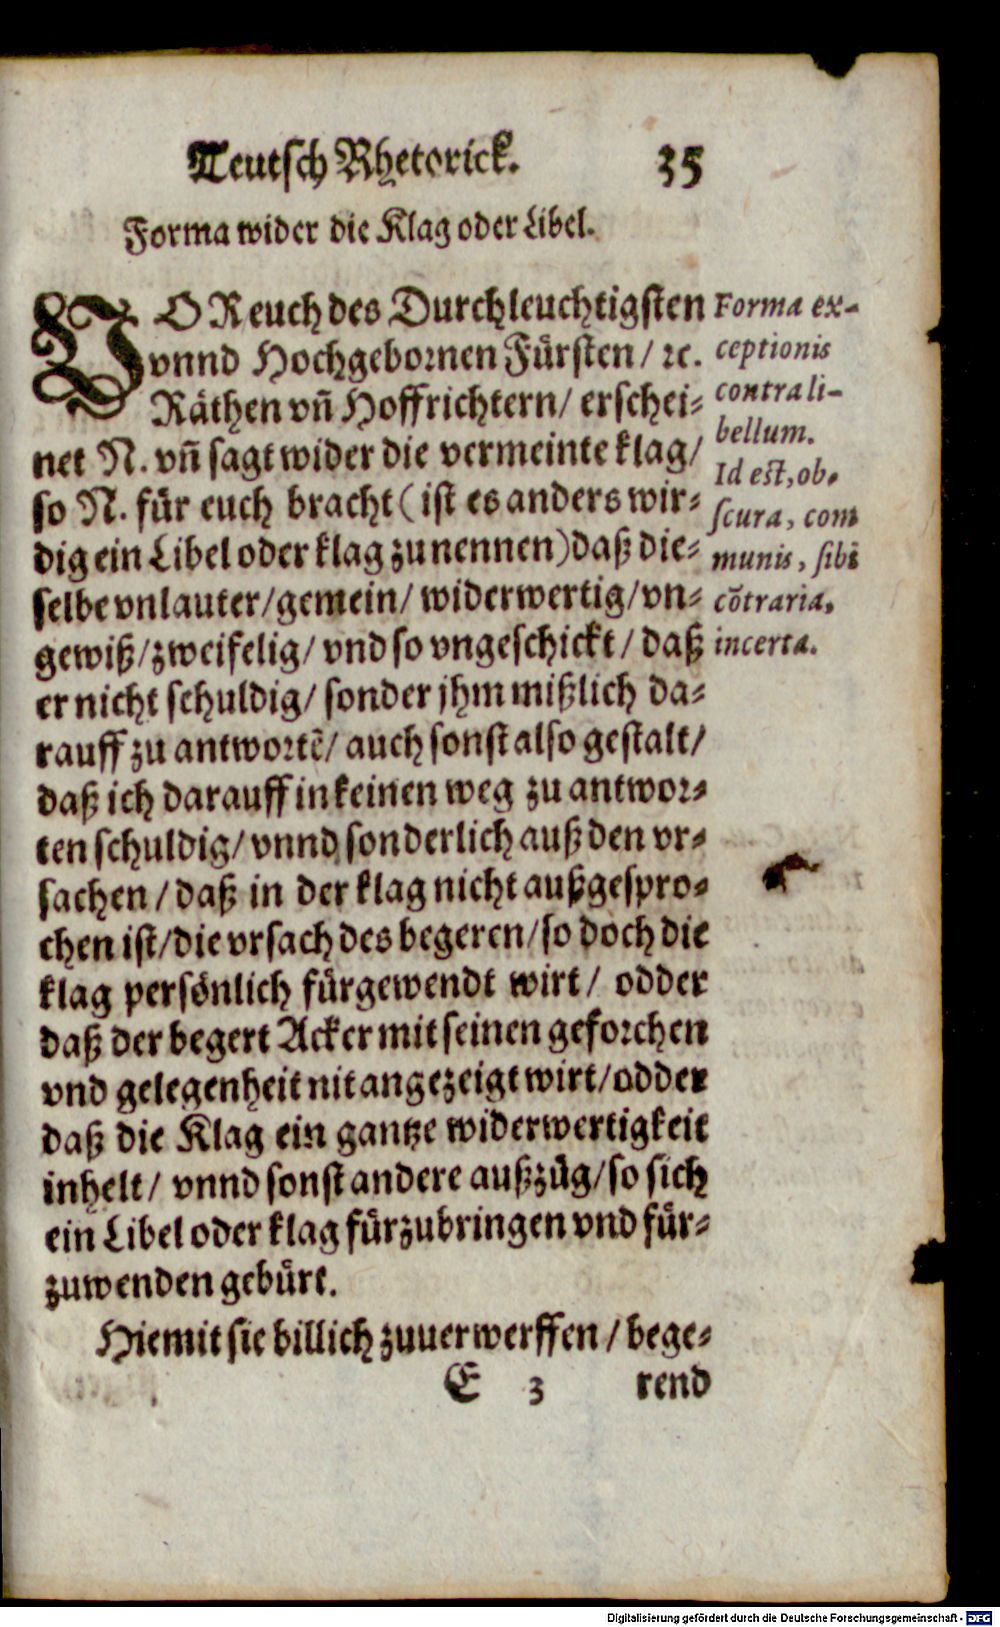 Teutsch Rhetorick. 35
Forma wider die Klag oder Libel.
VOR euch des Durchleuchtigsten
vnnd Hochgebornen Fürsten/ ꝛc.
Räthen vñ Hoffrichtern/ erschei⸗
net N. vñ sagt wider die vermeinte klag/
so N. für euch bracht (ist es anders wir⸗
dig ein Libel oder klag zu nennen) daß die⸗
selbe vnlauter/ gemein/ widerwertig/ vn⸗
gewiß/ zweifelig/ vnd so vngeschickt/ daß
er nicht schuldig/ sonder jhm mißlich da⸗
rauff zu antwortẽ/ auch sonst also gestalt/
daß ich darauff in keinen weg zu antwor⸗
ten schuldig/ vnnd sonderlich auß den vr⸗
sachen/ daß in der klag nicht außgespro⸗
chen ist/ die vrsach des begeren/ so doch die
klag persönlich fürgewendt wirt/ odder
daß der begert Acker mit seinen geforchen
vnd gelegenheit nit angezeigt wirt/ odder
daß die Klag ein gantze widerwertigkeit
inhelt/ vnnd sonst andere außzüg/ so sich
ein Libel oder klag fürzubringen vnd für⸗
zuwenden gebürt.
Hiemit sie billich zuuerwerffen/ bege⸗
E 3 rend
Forma ex-
ceptionis
contra li-
bellum.
Id est, ob-
scura, com
munis, sibi
cõtraria,
incerta.
Digitalisierung gefördert durch die Deutsche Forschungsgemeinschaft - DFG